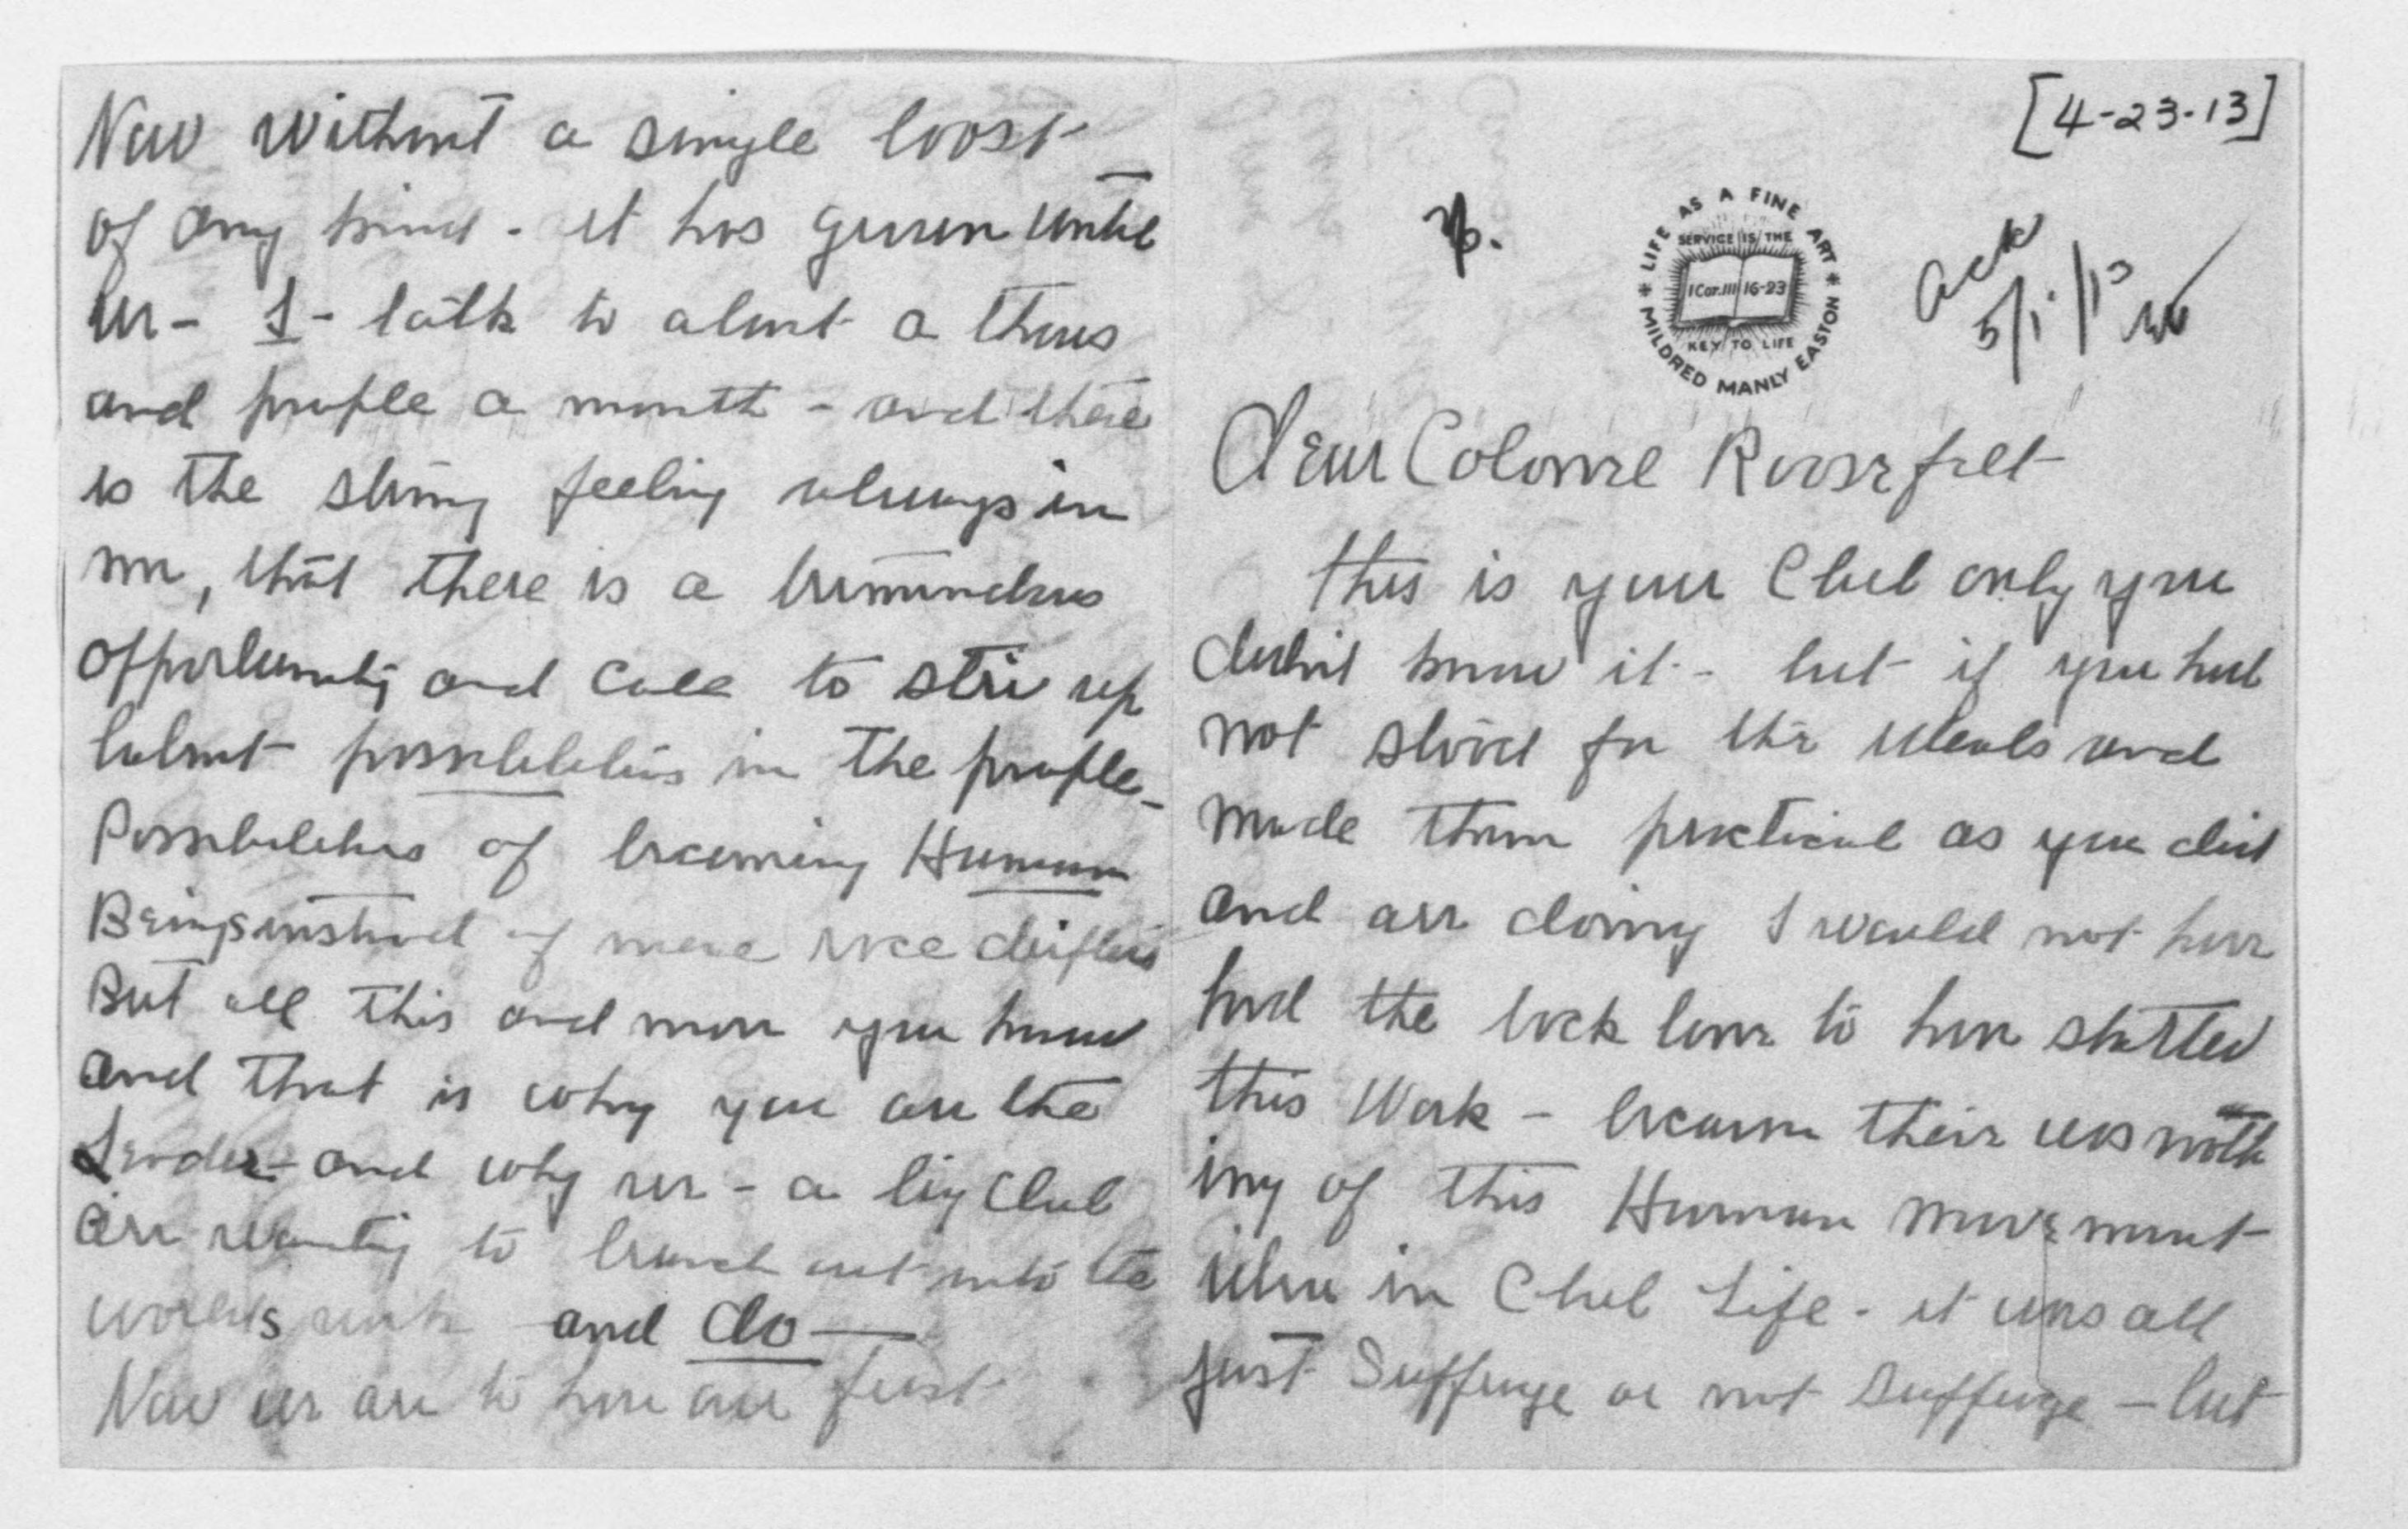 [4-23-13]
LIFE AS A FINE ART
SERVICE IS THE
I Cor. III 16-23
KEY TO LIFE
MILDRED MANLY EASTON
Ack
5/1/13
Dear Colonel Roosevelt
This is your Club only you
didn't know it - but if you had
not stood for the ideals and
made them practical as you did
and are doing I would not have
had the back bone to have started
this Work - because their was noth
ing of this Human movement
idea in Club Life - it was all
just Suffrage or not Suffrage - but
Now without a single boost
of any kind - it has grown until
we - I - talk to almost a thous
and people a month - and there
is the strong feeling always in
me, that there is a tremendous
opportunity and call to stir up
latent possibilities in the people -
Possibilities of becoming Human
Beings instead of mere race drifters
But all this and more you know
and that is why you are the
Leader - and why we - a big Club
are wanting to branch out into the
world's work and do —
Now we are to have our first